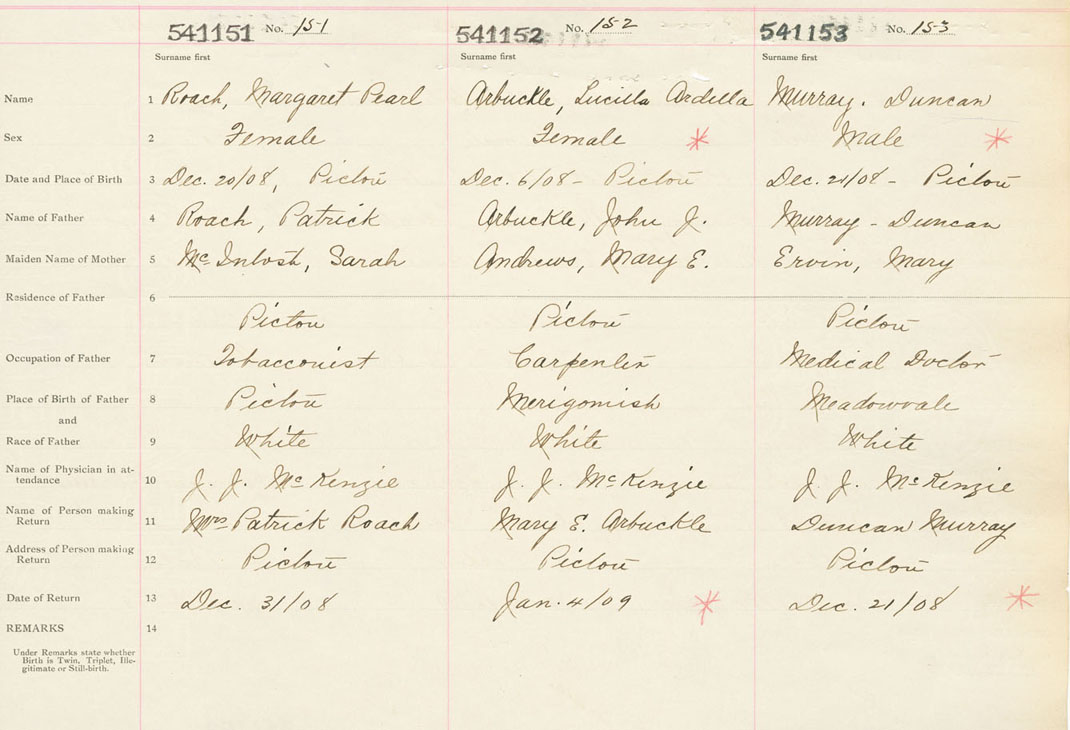 541151 No. 151 541152 No. 152 541153 No. 153
Surname first Surname first Surname first
Name 1 Roach, Margaret Pearl Arbuckle, Lucilla Ardella Murray. Duncan
Sex 2 Female Female Male
Date and Place of Birth 3 Dec. 20/08, Pictou Dec. 6/08 - Pictou Dec. 21/08 - Pictou
Name of Father 4 Roach, Patrick Arbuckle, John J. Murray - Duncan
Maiden Name of Mother 5 McIntosh, Sarah Andrews, Mary E. Ervin, Mary
Residence of Father 6
Pictou Pictou Pictou
Occupation of Father 7 Tobacconist Carpenter Medical Doctor
Place of Birth of Father 8 Pictou Merigomish Meadowvale
and
Race of Father 9 White White White
Name of Physician in at-
tendance 10 J. J. McKenzie J. J. McKenzie J. J. McKenzie
Name of Person making
Return 11 Mrs Patrick Roach Mary E. Arbuckle Duncan Murray
Address of Person making
Return 12 Pictou Pictou Pictou
Date of Return 13 Dec. 31/08 Jan. 4/09 Dec. 21/08
REMARKS 14
Under Remarks state whether
Birth is Twin, Triplet, Ille-
gitimate or Still-birth.